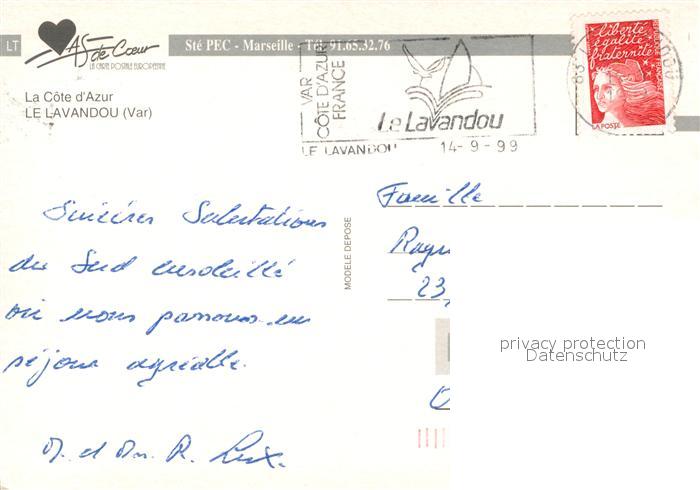 LT
AS de Cœur
LA CARTE POSTALE EUROPEENNE
Sté PEC - Marseille - Tél. 91.65.32.76
La Côte d'Azur
LE LAVANDOU (Var)
VAR
CÔTE D'AZUR
FRANCE
Le Lavandou
LE LAVANDOU 14-9-99
liberté
égalité
fraternité
LA POSTE
MODELE DEPOSE
Sincères Salutations
du Sud ensoleillé
où nous passons un
séjour agréable.
M. et Mm. R.
Famille
23,
privacy protection
Datenschutz